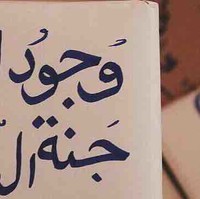 وُجود
جَنة